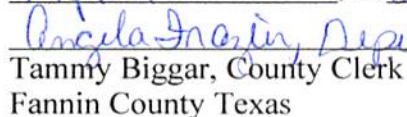 Angela Frazier, Depu
Tammy Biggar, County Clerk
Fannin County Texas